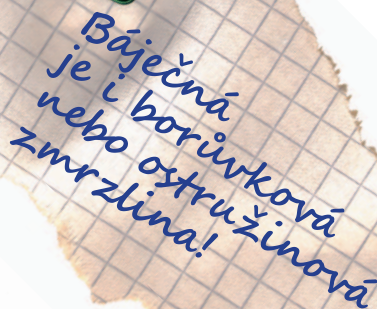 Báječná
je i borůvková
nebo ostružinová
zmrzlina!